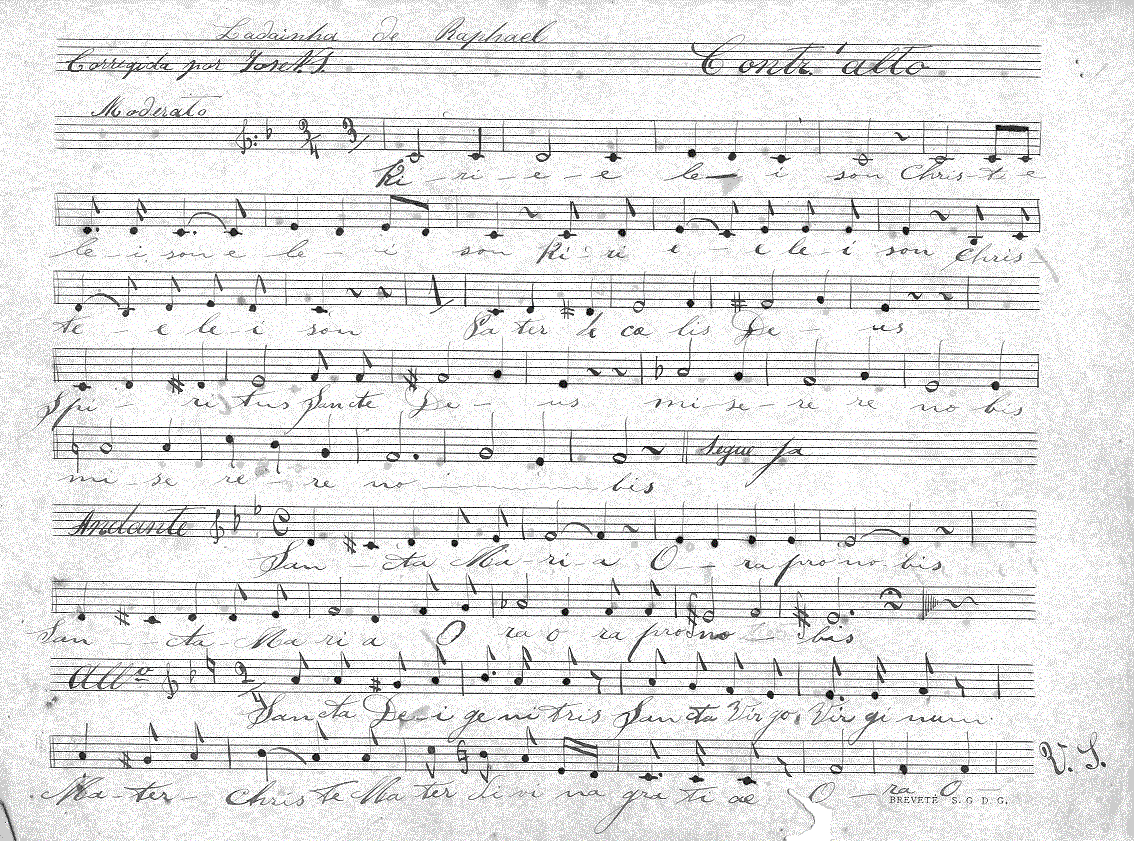 Ladainha de Raphael
Corregida por José N. S. Contr'alto
Moderato
3/4 3
Ki - ri - e - e le - i son Chris - te e
le - i son e le - i son Ki - ri e - e le - i son Chris
te - e le - i son Pa ter de cœ lis De - us
Spi - ri tus Sancte De - us mi - se - re re no bis
mi - se re - re no bis Segue Ja
Andante
San - cta Ma - ri - a O - - ra pro no - bis
San - - cta Ma ri a O ra o ra pro no - bis
All.º 2/4
Sancta De - i ge ni tris Sancta Virgo Vir gi num
Ma - ter - Chris te Ma ter di vi na gra ti ae O - ra O V. S.
BREVETÉ S. G. D. G.